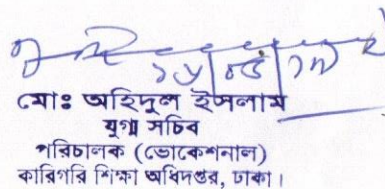 মোঃ অহিদুল ইসলাম
যুগ্ম সচিব
পরিচালক (ভোকেশনাল)
কারিগরি শিক্ষা অধিদপ্তর, ঢাকা।